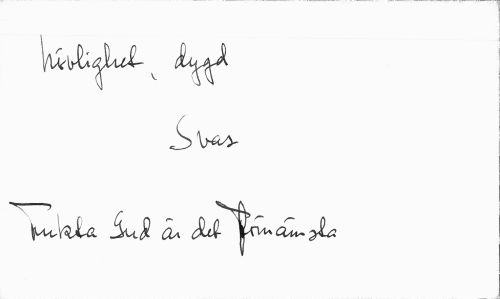 hövlighet, dygd
Svas
Frukta Gud är det förnämsta